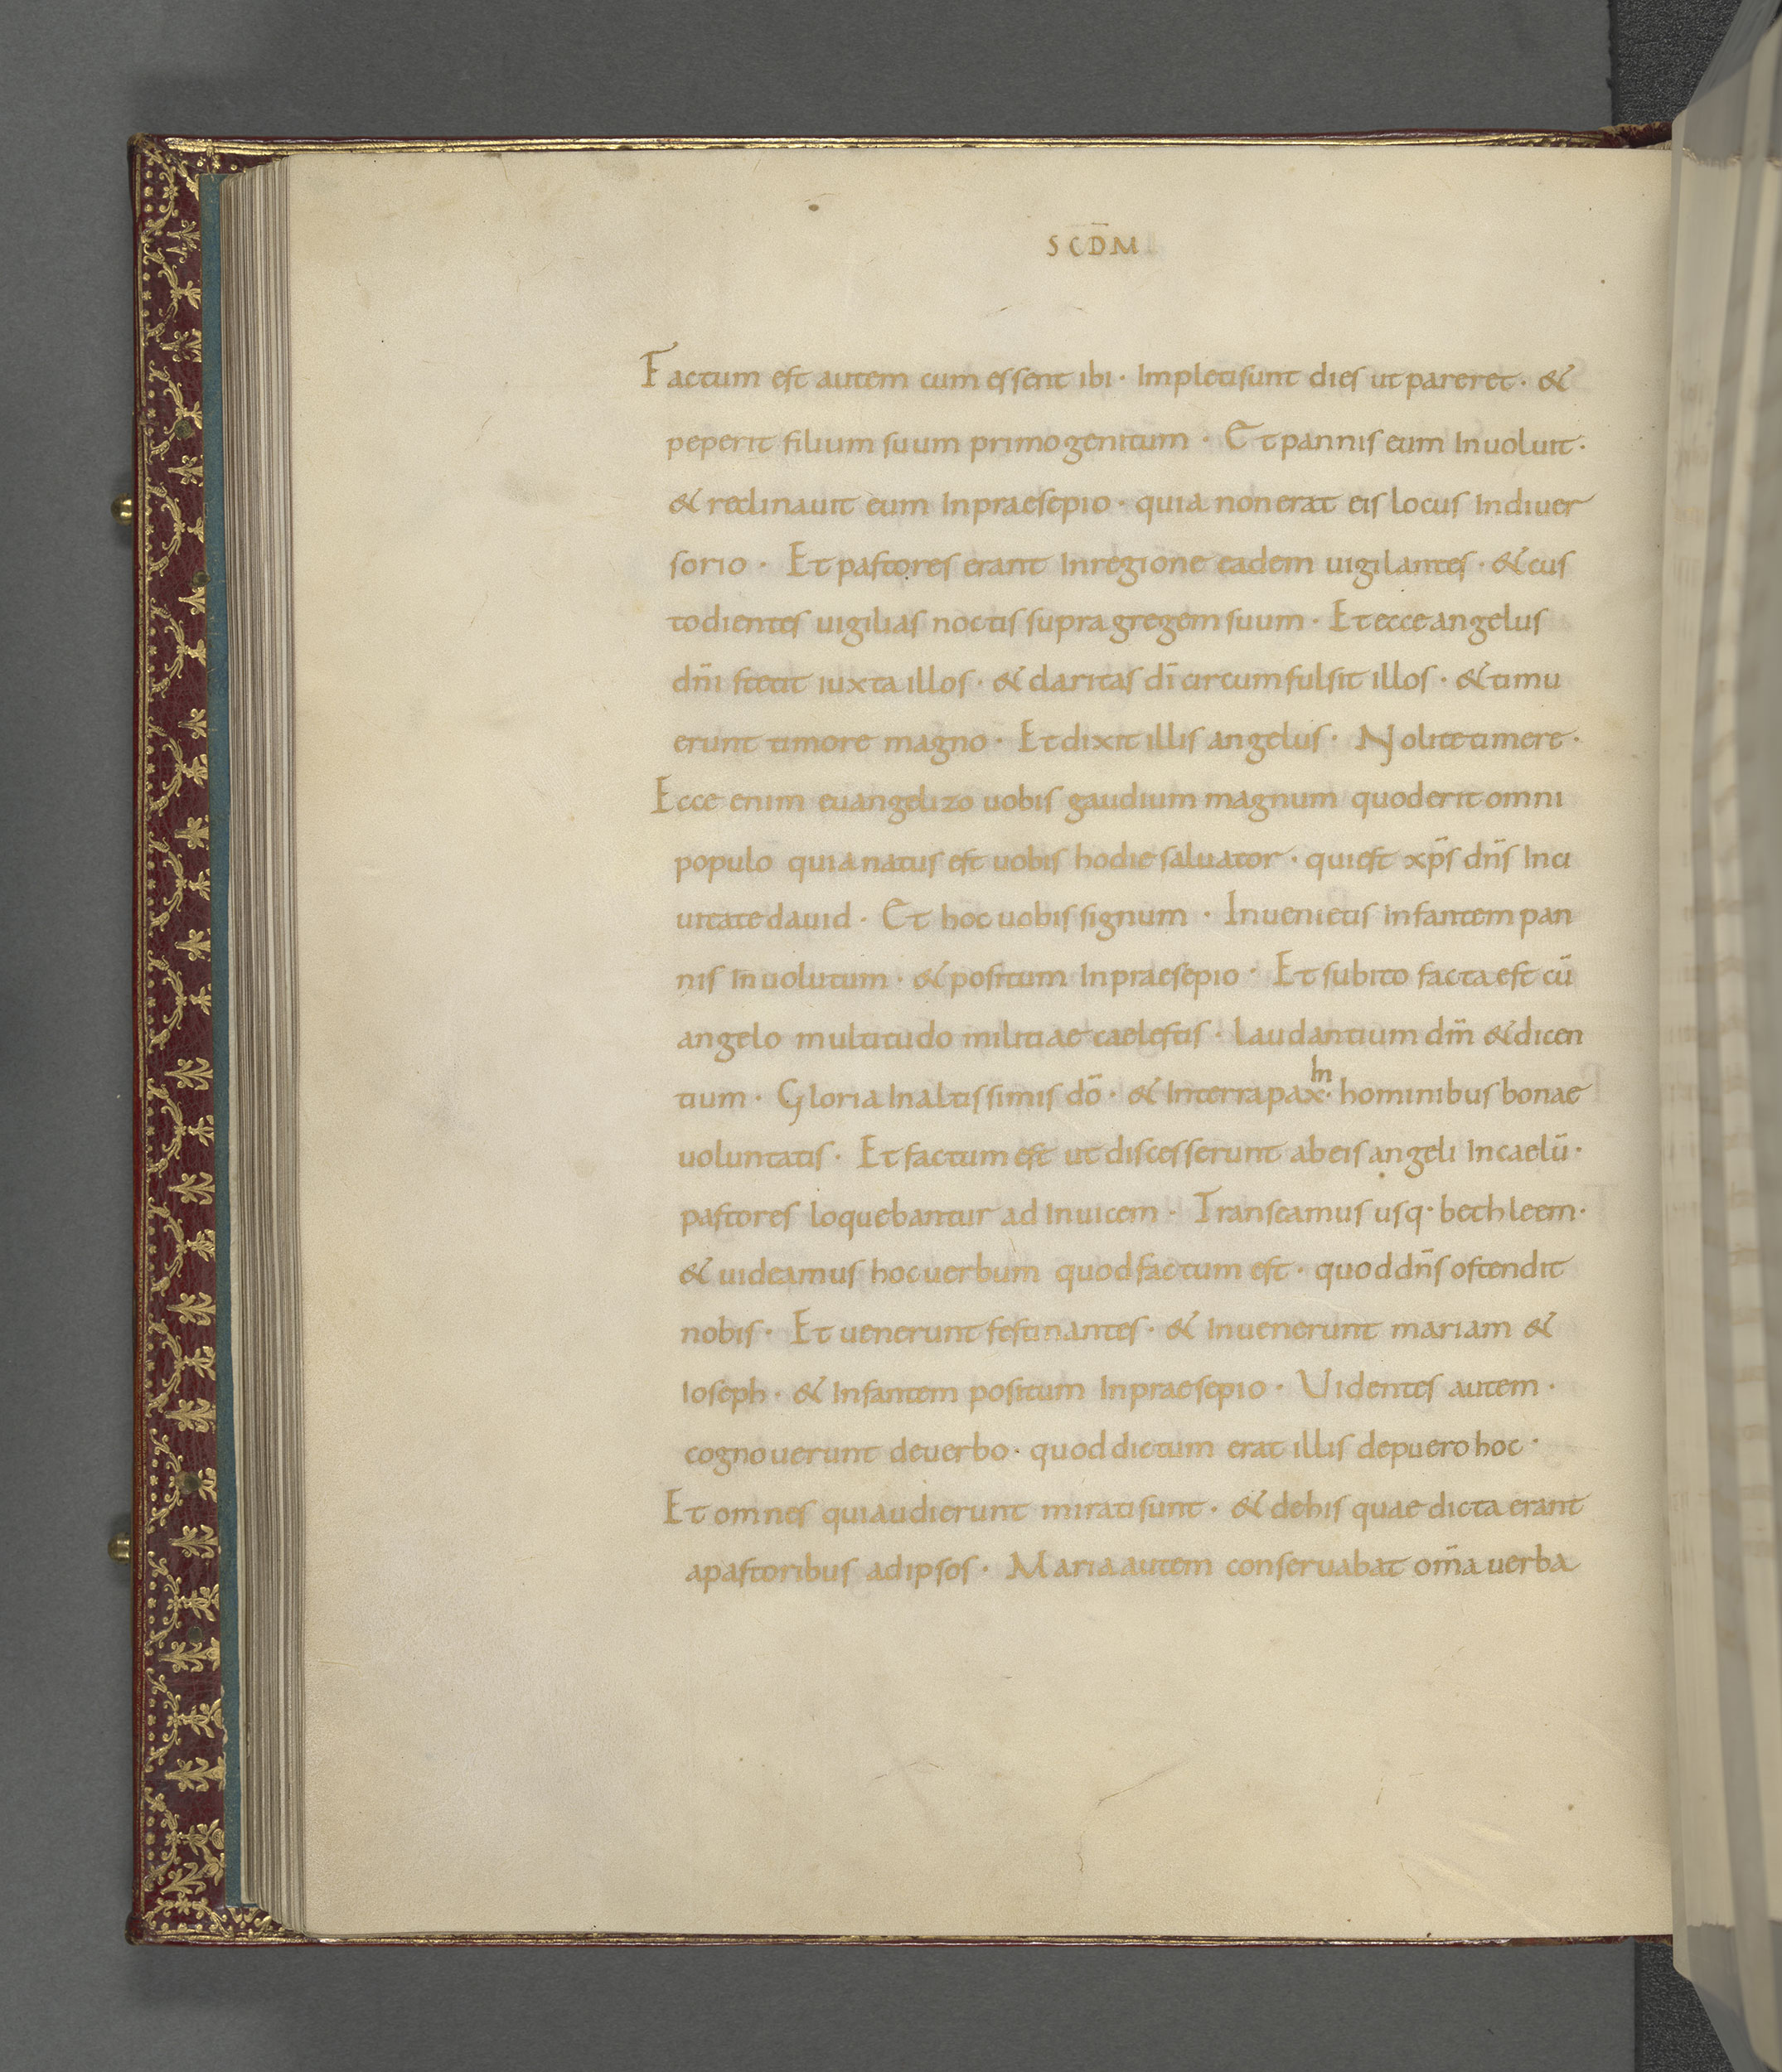 SCD̄M
Factum est autem cum essent ibi · Impleti sunt dies ut pareret · &
peperit filium suum primogenitum · Et pannis eum Inuoluit ·
& reclinauit eum Inpraesepio · quia non erat eis locus Indiuer
sorio · Et pastores erant Inregione eadem uigilantes · & cus
todientes uigilias noctis supra gregem suum · Et ecce angelus
dn̄i stetit iuxta illos · & claritas dī circumfulsit illos · & timu
erunt timore magno · Et dixit illis angelus · Nolite timere ·
Ecce enim euangelizo uobis gaudium magnum quod erit omni
populo quia natus est uobis hodie saluator · qui est xp̄s dn̄s Inci
uitate dauid · Et hoc uobis signum · Inuenietis Infantem pan
nis Inuolutum · & positum Inpraesepio · Et subito facta est cū
angelo multitudo militiae caelestis · laudantium dm̄ & dicen
tium · Gloria Inaltissimis dō · & Interra pax · In hominibus bonae
uoluntatis · Et factum est ut discesserunt ab eis angeli Incaelū ·
pastores loquebantur ad Inuicem · Transeamus usq· bethleem ·
& uideamus hoc uerbum quod factum est · quod dn̄s ostendit
nobis · Et uenerunt festinantes · & Inuenerunt mariam &
Ioseph · & Infantem positum Inpraesepio · Uidentes autem ·
cognouerunt deuerbo · quod dictum erat illis depuero hoc ·
Et omnes qui audierunt mirati sunt · & dehis quae dicta erant
apastoribus ad ipsos · Maria autem conseruabat om̄a uerba